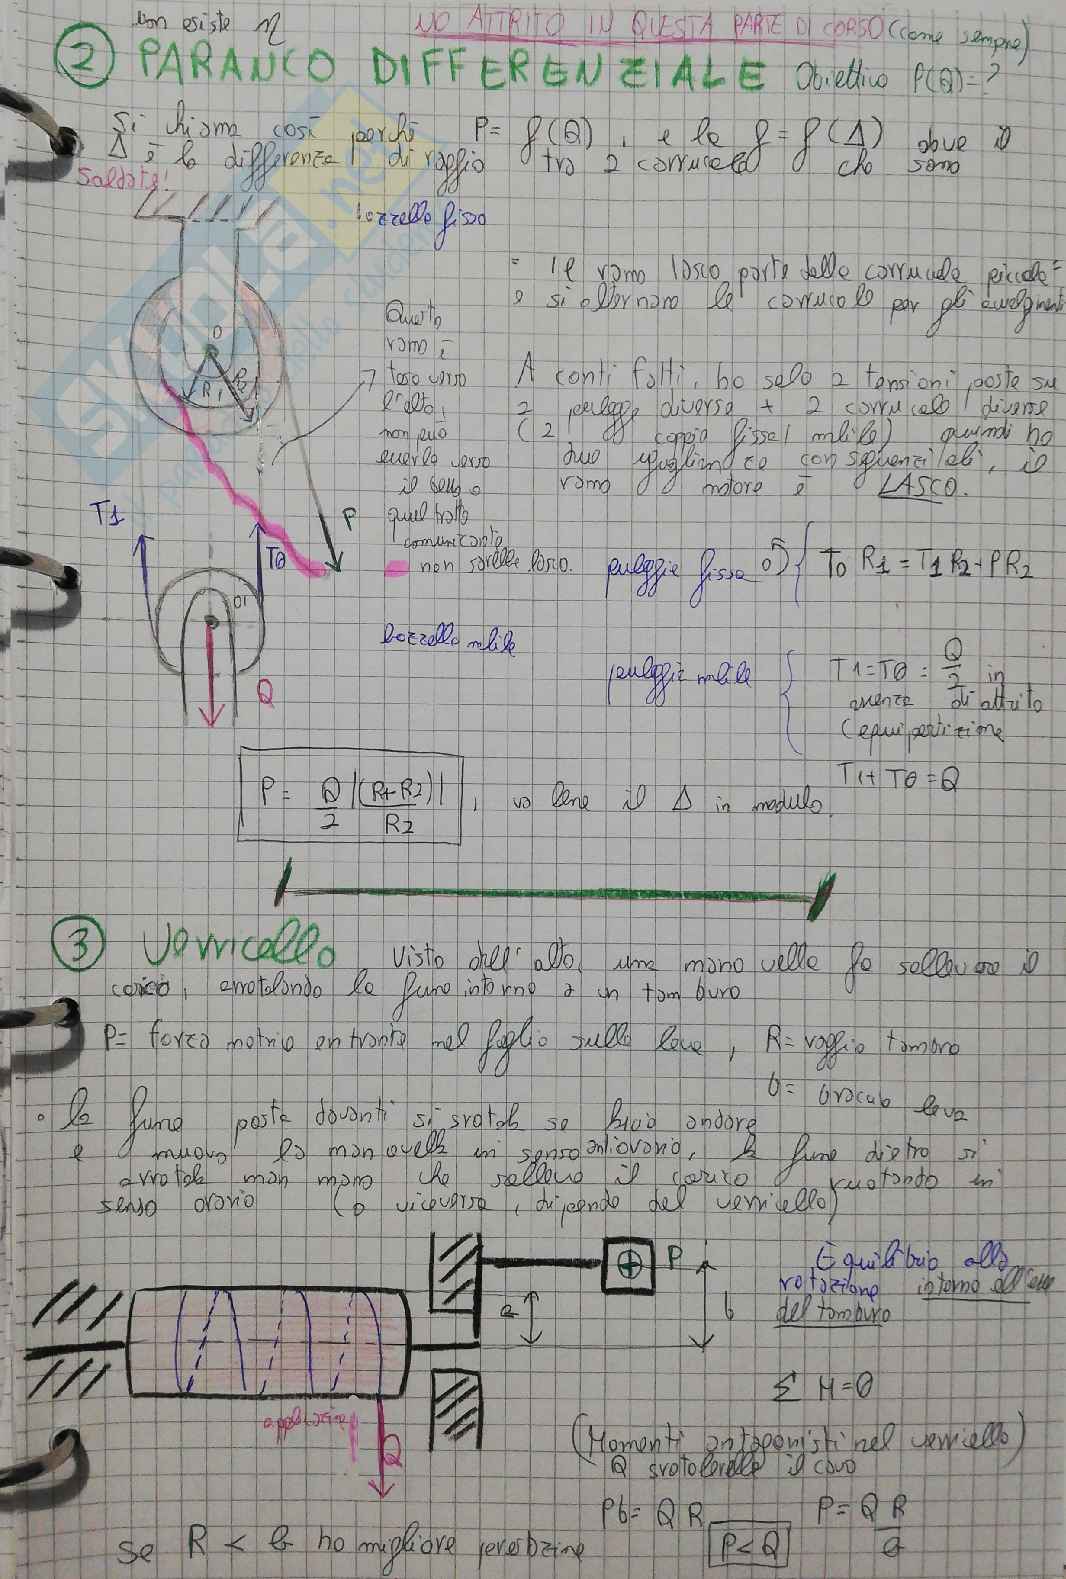 non esiste η
NO ATTRITO IN QUESTA PARTE DI CORSO (come sempre)
2 PARANCO DIFFERENZIALE Obiettivo P(Q)=?
Si chiama così perché P= f(Q), e la f=f(Δ) dove il
Δ è la differenza di raggio tra 2 carrucole che sono
saldate!
bozzello fisso
= Il ramo lasco parte dalla carrucola piccola =
e si alternano le carrucole per gli avvolgimenti
Questo
ramo è
teso verso
l'alto,
non può
averlo verso
il basso
quel tratto
comunicante
non sarebbe lasco.
A conti fatti, ho solo 2 tensioni, poste su
2 pulegge diverse + 2 carrucole diverse
(2 coppia fissa/mobile) quindi ho
due uguaglianze consequenziali, il
ramo motore è LASCO.
O R1 R2
P
T1
T0
O1
Q
pulegge fissa O) { T0 R1 = T1 R2 - PR2
bozzello mobile
puleggia mobile { T1=T0= Q/2 in
assenza di attrito
(equipartizione
T1+T0=Q
P= Q/2 |(R1-R2)|/R2, va bene il Δ in modulo.
3 Verricello Visto dall'alto, una manovella fa sollevare il
carico, arrotolando la fune intorno a un tamburo
P= forza motrice entrante nel foglio sulla leva, R= raggio tamburo
b= braccio leva
• la fune posta davanti si srotola se lascio andare
e muovo la manovella in senso antiorario, la fune dietro si
arrotola man mano che sollevo il carico ruotando in
senso orario (o viceversa, dipende dal verricello)
P
R
b
Equilibrio alla
rotazione intorno all'asse
del tamburo
Σ M=0
Q
(Momenti antagonisti nel verricello)
Q srotolerebbe il cavo
Pb= Q R P= Q R/b
Se R < b ho migliore prestazione P<Q